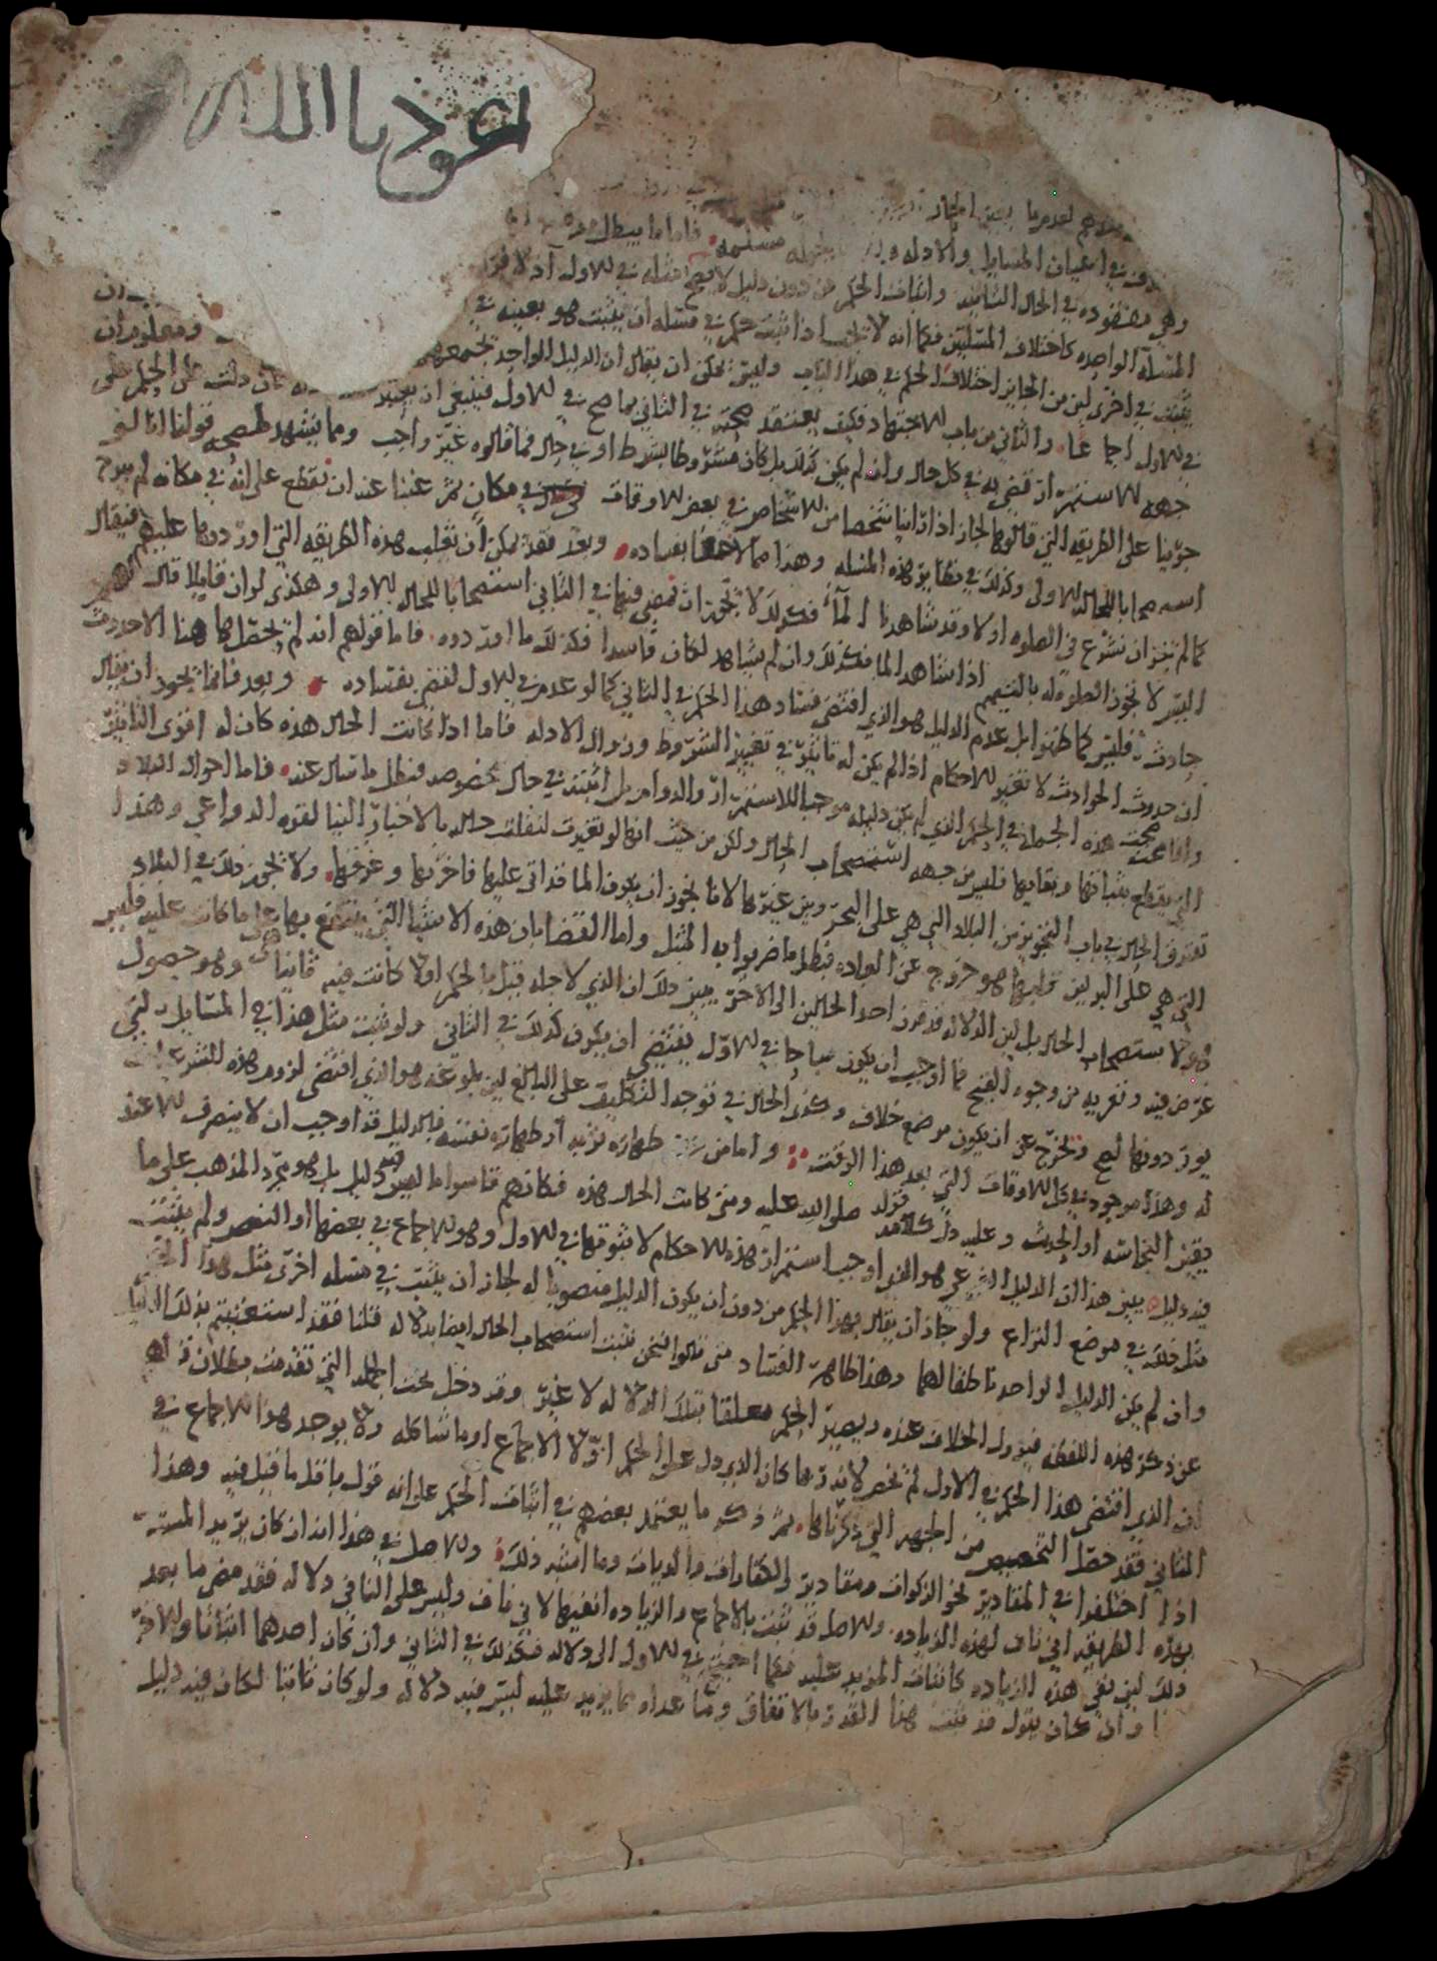 اعوذ بالله
لعدم ما بين الحال
في اعيان المسايل والادله مسلمه فاما ما يبطل
وهي مفقوده في الحال الثانيه واثبات الحكم من دون دليل لا يصح مثله في الاول اذ لا فرق
المسله الواحده كاختلاف المسلتين فكما انه لا يجب اذا ثبت حكم في مسله ان يثبت هو بعينه في
يثبت في اخرى لين من الجايز اختلاف الحكم في هذا الباب وليس يمكن ان يقال ان الدليل الواحد يجمعهما ومعلوم ان
في الاول اجماعا والثاني من باب الاجتهاد فكيف يعتقد صحته في الثاني بما صح في الاول فينبغي ان يعتبر دلت على الحكم على
جهه الاستمرار قضي به في كل حال وان لم يكن كذلك بل كان مشروطا بشرط او في حال فما قالوه غير واجب ومما يشهد لصحه قولنا انا لو
جرينا على الطريقه التي قالوها لجاز اذا راينا شخصا من الاشخاص في بعض الاوقات في مكان ثم غبنا عنه ان نقطع على انه في مكانه لم يبرح
استصحابا للحاله الاولى وكذلك في نظاير هذه المسله وهذا مما لا خفا بفساده وبعد فقد يمكن ان نقلب هذه الطريقه التي اوردوها عليهم فيقال
كما لم يجز ان نشرع في الصلوه اولا وقد شاهدنا الما فكذلك لا يجوز ان نمضي فيها في الثاني استصحابا للحال الاولى وهكذى لو ان قايلا قال
اليس لا تجوز الصلوه له بالتيمم اذا شاهد الما فكذلك وان لم يشاهد لكان فاسدا فكذلك ما اوردوه فاما قولهم انه لم يحصل هاهنا الا حدوث
حادث فليس كما ظنوا بل عدم الدليل هو الذي اقتضى فساد هذا الحكم في الثاني كما لو عدم في الاول لقضي بفساده وبعد فانما يجوز ان يقال
ان حدوث الحوادث لا تغير الاحكام اذا لم يكن له تاثير في تغيير الشروط وزوال الادله فاما اذا كانت الحال هذه كان له اقوى التاثير
وانما صحت هذه الجمله في الحكم الذي لم يكن دليله موجبا للاستمرار والدوام بل اثبته في حال مخصوصه فبطل ما سال عنه فاما احوال البلاد
التي يقطع بثباتها وبقايها فليس من جهه استصحاب الحال ولكن من حيث انها لو تغيرت لنقلت حاله بالاخبار الينا لقوه الدواعي وهذا
تفترق الحال في باب التجويز بين البلاد التي هي على البحر وبين غيرها لانا نجوز ان يكون الما قد اتى عليها فاخربها وغرقها ولا نجوز ذلك في البلاد
التي هي على البر لين خرابها هو خروج عن العاده فبطل ما ضربوا به المثل واما القضا بان هذه الاشيا التي ينتفع بها على ما كانت عليه فليس
هو لاستصحاب الحال بل لين الدلاله قد سوت احدا الحالين الى الاخرى يبين ذلك ان الذي لاجله قيل بالحكم اولا كانت فيه ثانيا وهو حصول
غرض فيه وتعريه من وجوه القبح فما اوجب ان يكون مباحا في الاول يقتضي ان يكون كذلك في الثاني ولو ثبت مثل هذا في المسايل التي
يورد دونها لصح وتخرج عن ان يكون موضع خلاف وكذى الحال في توجه التكليف على البالغ لين بلوغه هو الذي اقتضى لزوم هذه الشرعيات
له وهذا موجود في كل الاوقات التي بعد هذا الوقت واما من طهارة ثوبه او طهارة نفسه فالدليل قد اوجب ان لا ينصرف الا عند
تيقن النجاسه او الحدث وعليه دل قوله صلى الله عليه ومتى كانت الحال هذه فكانهم قاسوا ما ليس فيه دليل بل هو مجرد المذهب على ما
فيه دليل يبين هذا ان الدليل الشرعي هو الذي اوجب استمرار هذه الاحكام لا ثبوتها في الاول وهو الاجماع في بعضها او النص ولم يثبت
مثل ذلك في موضع النزاع ولو جاز ان يقال بهذا الحكم من دون ان يكون الدليل منصوبا له لجاز ان يثبت في مسله اخرى مثل هذا الحكم
وان لم يكن الدليل الواحد ناطقا لهما وهذا ظاهر الفساد متى قالوا فنحن نثبت استصحاب الحال ايضا بدلاله قلنا فقد استغنيتم بذلك
عن ذكر هذه اللفظه فيزول الخلاف عنده ويصير الحكم معلقا بتلك الدلاله لا غير وقد دخل تحت الجمله التي تقدمت بطلان
ان الذي اقتضى هذا الحكم في الاول لم نخص لانه ربما كان الذي دل على الحكم اولا الاجماع او ما شاكله ولا يوجد هذا الاجماع في
الثاني فقد حصل التخصيص من الجهه التي ذكرناها ثم ذكر ما يعتمد بعضهم في اثبات الحكم على انه قول باقل ما قيل فيه وهذا
اذا اختلفوا في المقادير نحو الزكوات ومقادير الكفارات والديات وما اشبه ذلك والاصل في هذا انه ان كان يريد المستدل
بهذه الطريقه اني ناف لهذه الزياده والاصل قد ثبت بالاجماع والزياده انفيها لاني ناف وليس على النافي دلاله فقد مضى ما بعد
ذلك لين نفي هذه الزياده كاثبات المزيد عليه فكما احتيج في الاول الى دلاله فكذلك في الثاني وان كان احدهما اثباتا والاخر
وان كان يقول قد ثبت هذا القدر بالاتفاق وما عداه مما يزيد عليه ليس فيه دلاله ولو كان ثابتا لكان فيه دليل